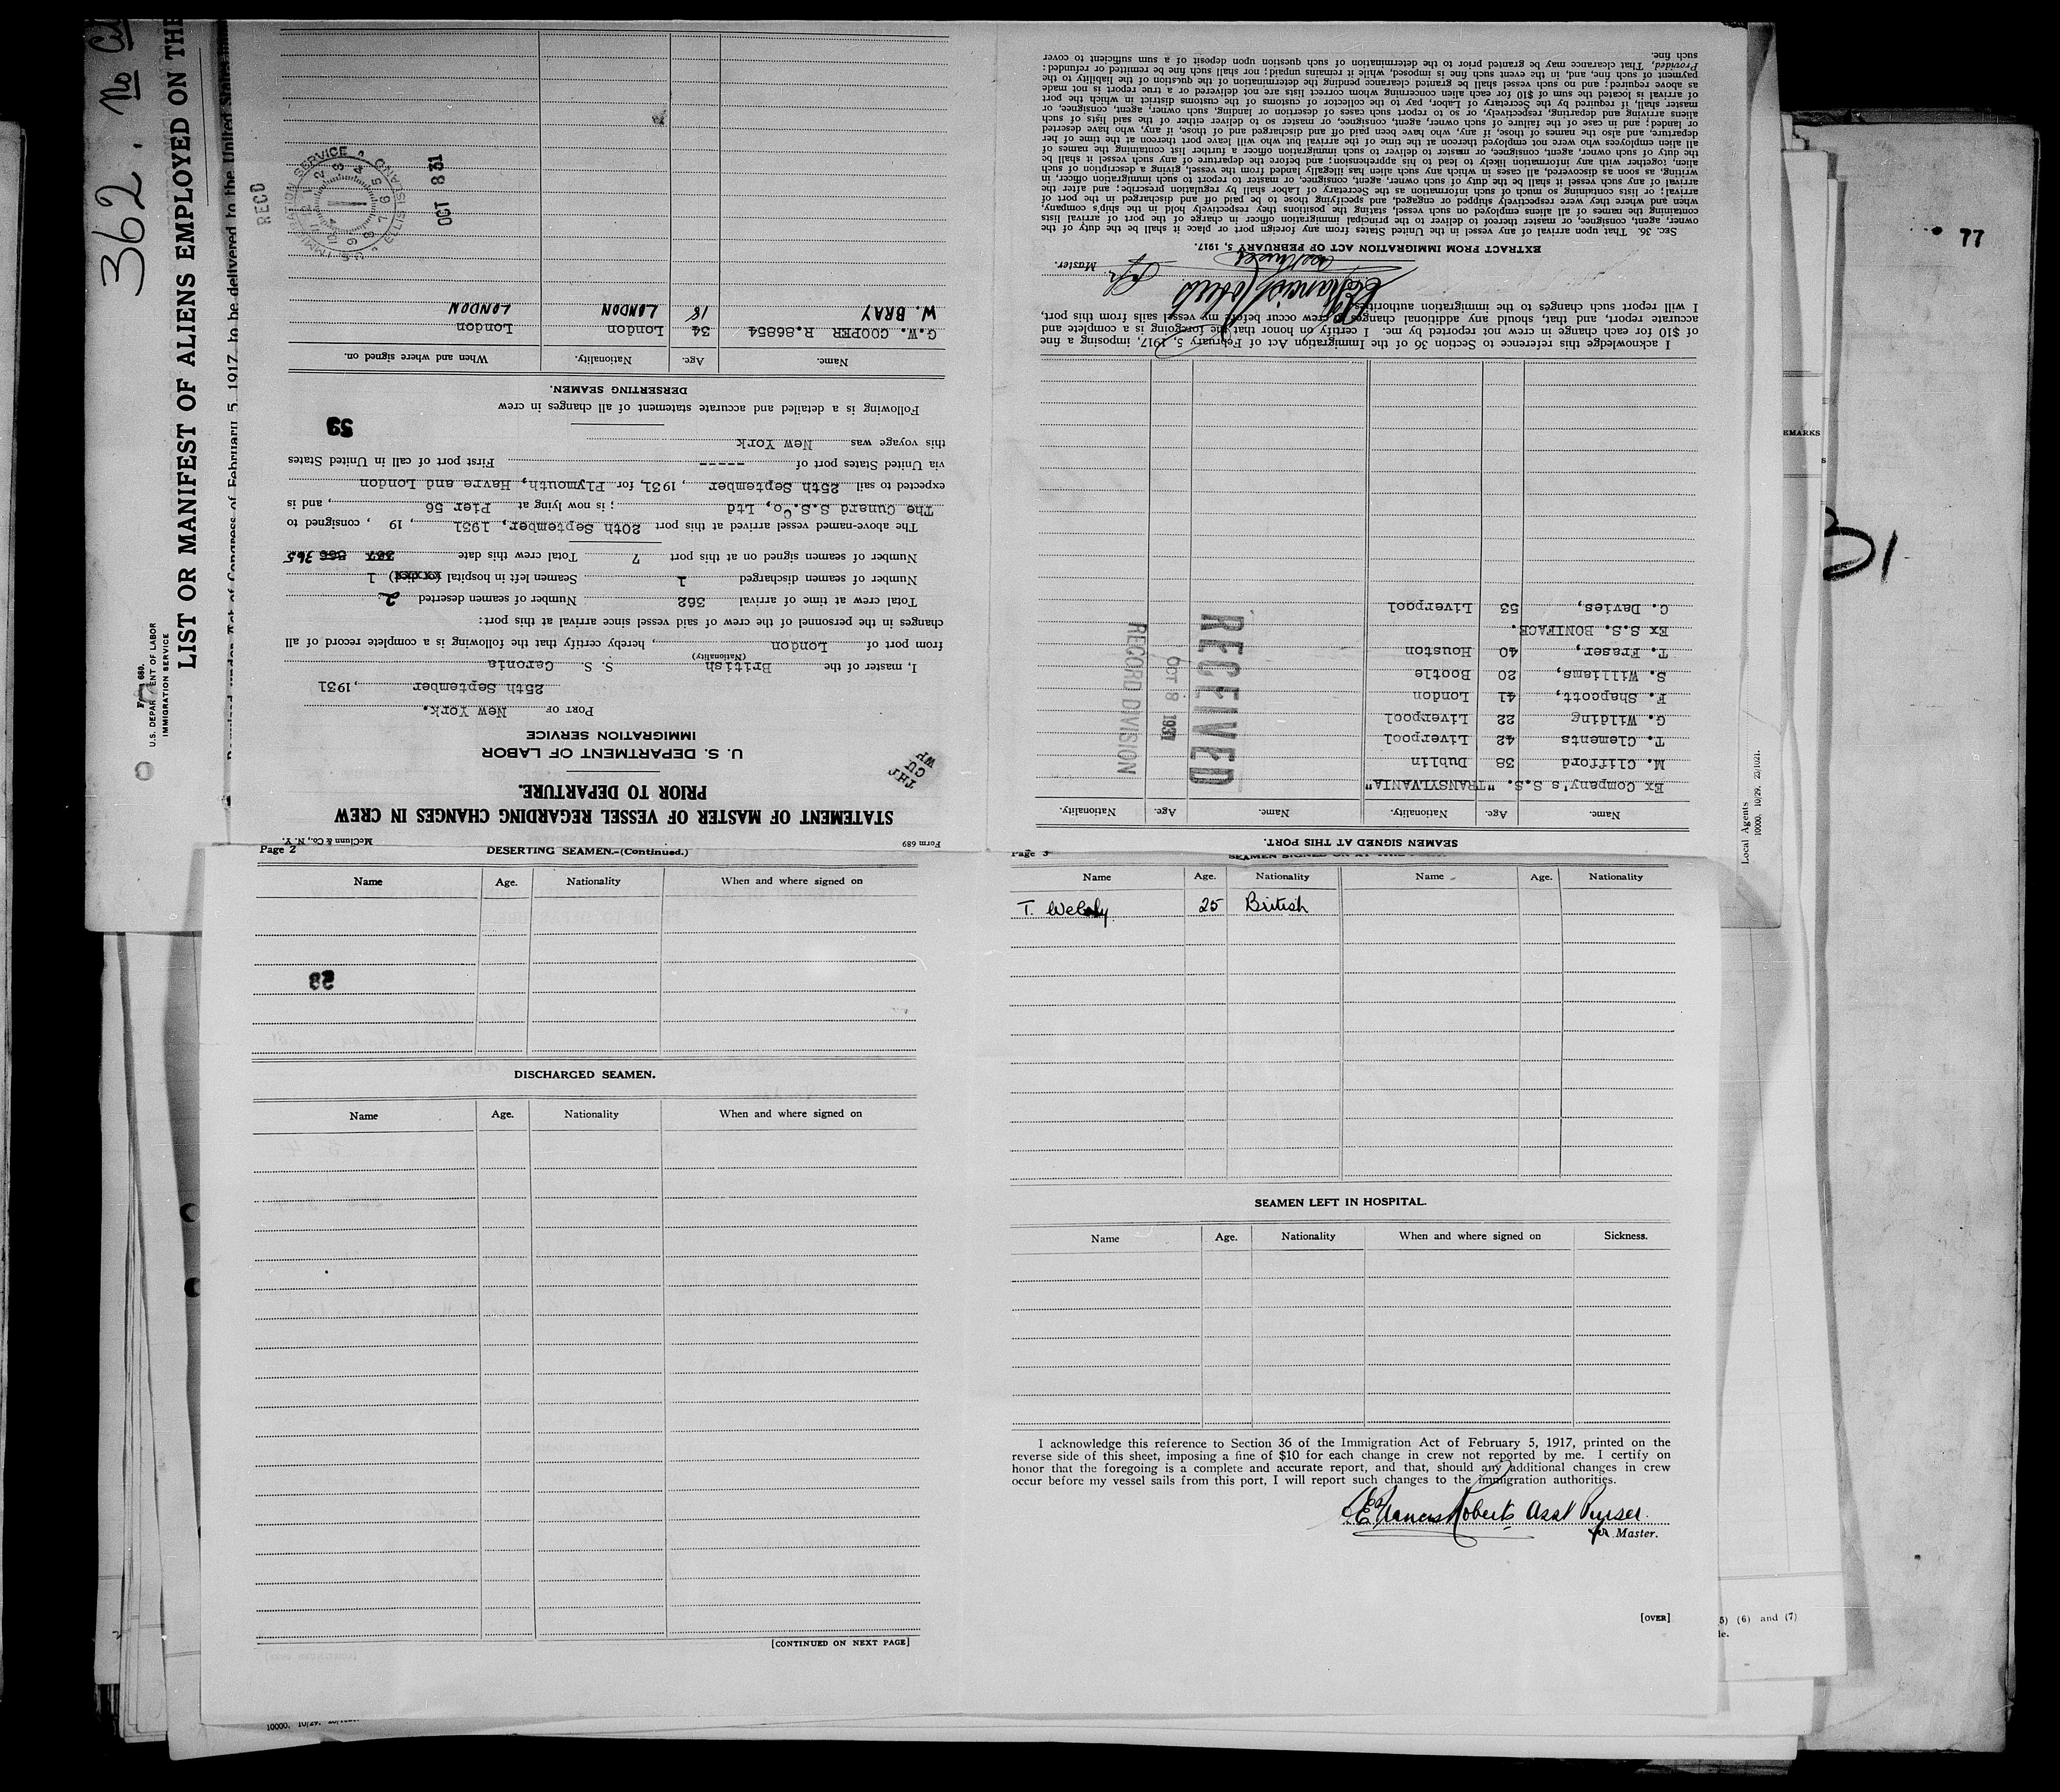 362. No
LIST OR MANIFEST OF ALIENS EMPLOYED ON THE
Form 689.
U.S. DEPARTMENT OF LABOR
IMMIGRATION SERVICE
Form 689
McClunn & Co., N. Y.
STATEMENT OF MASTER OF VESSEL REGARDING CHANGES IN CREW
PRIOR TO DEPARTURE.
U. S. DEPARTMENT OF LABOR
IMMIGRATION SERVICE
PORT OF New York.
25th September, 1931
I, master of the British S. S. Caronia
(Nationality)
from port of London, hereby certify that the following is a complete record of all
changes in the personnel of the crew of said vessel since arrival at this port:
Total crew at time of arrival 362 Number of seamen deserted 2
Number of seamen discharged 1 Seamen left in hospital 1
Number of seamen signed on at this port 7 Total crew this date 367 366 365
The above-named vessel arrived at this port 20th September, 1931, 19 , consigned to
The Cunard S.S.Co, Ltd ; is now lying at Pier 56, and is
expected to sail 25th September, 1931, for Plymouth, Havre and London
via United States port of ----- First port of call in United States
this voyage was New York
59
Following is a detailed and accurate statement of all changes in crew
DERSERTING SEAMEN.
Name. Age. Nationality. When and where signed on.
G.W. COOPER R.86854 34 London London
W. BRAY 18 LONDON LONDON
RECD
U. S. IMMIGRATION SERVICE
OCT 8 31
SEAMEN SIGNED AT THIS PORT.
Name. Age. Nationality. Name. Age. Nationality.
Ex Company's S.S. "TRANSYLVANIA"
M. Clifford 38 Dublin
T. Clements 42 Liverpool
G. Wilding 22 Liverpool
F. Shapcott, 41 London
S. Williams, 20 Bootle
T. Fraser, 40 Houston
Ex S.S. BONIFACE.
C. Davies, 53 Liverpool
RECEIVED
OCT 8 1931
RECORD DIVISION
I acknowledge this reference to Section 36 of the Immigration Act of February 5, 1917, imposing a fine
of $10 for each change in crew not reported by me. I certify on honor that the foregoing is a complete and
accurate report, and that, should any additional changes in crew occur before my vessel sails from this port,
I will report such changes to the immigration authorities.
Master.
EXTRACT FROM IMMIGRATION ACT OF FEBRUARY 5, 1917.
SEC. 36. That upon arrival of any vessel in the United States from any foreign port or place it shall be the duty of the
owner, agent, consignee, or master thereof to deliver to the principal immigration officer in charge of the port of arrival lists
containing the names of all aliens employed on such vessel, stating the positions they respectively hold in the ship's company,
when and where they were respectively shipped or engaged, and specifying those to be paid off and discharged in the port of
arrival; or lists containing so much of such information as the Secretary of Labor shall by regulation prescribe; and after the
arrival of any such vessel it shall be the duty of such owner, agent, consignee, or master to report to such immigration officer, in
writing, as soon as discovered, all cases in which any such alien has illegally landed from the vessel, giving a description of such
alien, together with any information likely to lead to his apprehension; and before the departure of any such vessel it shall be
the duty of such owner, agent, consignee, or master to deliver to such immigration officer a further list containing the names of
all alien employees who were not employed thereon at the time of the arrival but who will leave port thereon at the time of her
departure, and also the names of those, if any, who have been paid off and discharged and of those, if any, who have deserted
or landed; and in case of the failure of such owner, agent, consignee, or master so to deliver either of the said lists of such
aliens arriving and departing, respectively, or so to report such cases of desertion or landing, such owner, agent, consignee, or
master shall, if required by the Secretary of Labor, pay to the collector of customs of the customs district in which the port
of arrival is located the sum of $10 for each alien concerning whom correct lists are not delivered or a true report is not made
as above required; and no such vessel shall be granted clearance pending the determination of the question of the liability to the
payment of such fine, and, in the event such fine is imposed, while it remains unpaid; nor shall such fine be remitted or refunded:
Provided, That clearance may be granted prior to the determination of such question upon deposit of a sum sufficient to cover
such fine.
Page 2
DESERTING SEAMEN.—(Continued.)
Name Age. Nationality When and where signed on
58
DISCHARGED SEAMEN.
Name Age. Nationality When and where signed on
[CONTINUED ON NEXT PAGE]
Page 3
Name Age. Nationality Name Age. Nationality
T. 25 British
SEAMEN LEFT IN HOSPITAL.
Name Age. Nationality When and where signed on Sickness.
I acknowledge this reference to Section 36 of the Immigration Act of February 5, 1917, printed on the
reverse side of this sheet, imposing a fine of $10 for each change in crew not reported by me. I certify on
honor that the foregoing is a complete and accurate report, and that, should any additional changes in crew
occur before my vessel sails from this port, I will report such changes to the immigration authorities.
Francis Roberts Asst Purser
for Master.
[OVER]
77
Local Agents
(6) and (7)